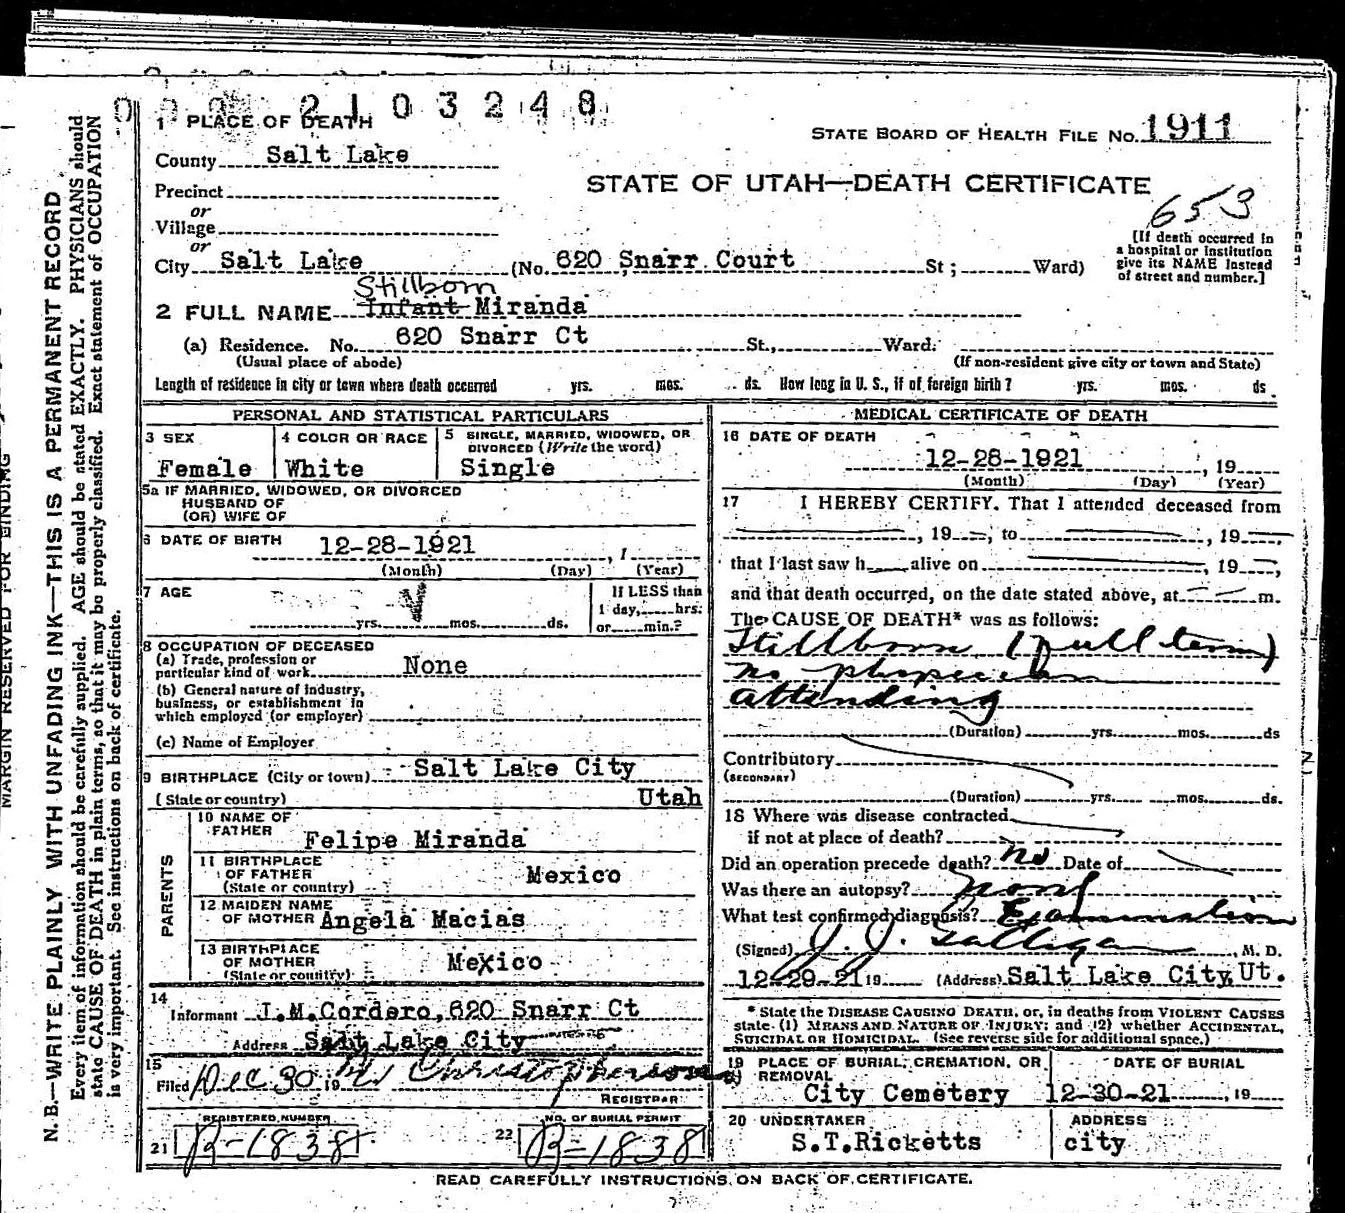 0 0 0 2 1 0 3 2 4 8
1 PLACE OF DEATH
STATE BOARD OF HEALTH FILE No. 1911
County Salt Lake
STATE OF UTAH—DEATH CERTIFICATE
Precinct
or
653
Village
or
City Salt Lake (No. 620 Snarr Court St; Ward)
[If death occurred in
a hospital or institution
give its NAME instead
of street and number.]
Stillborn
2 FULL NAME Infant Miranda
(a) Residence. No. 620 Snarr Ct St., Ward.
(Usual place of abode) (If non-resident give city or town and State)
Length of residence in city or town where death occurred yrs. mos. ds. How long in U. S., if of foreign birth? yrs. mos. ds.
PERSONAL AND STATISTICAL PARTICULARS
3 SEX
Female
4 COLOR OR RACE
White
5 SINGLE, MARRIED, WIDOWED, OR
DIVORCED (Write the word)
Single
5a IF MARRIED, WIDOWED, OR DIVORCED
HUSBAND OF
(OR) WIFE OF
6 DATE OF BIRTH 12-28-1921 , 1
(Month) (Day) (Year)
7 AGE
yrs. mos. ds.
If LESS than
1 day, hrs.
or min.?
8 OCCUPATION OF DECEASED
(a) Trade, profession or
particular kind of work None
(b) General nature of industry,
business, or establishment in
which employed (or employer)
(c) Name of Employer
9 BIRTHPLACE (City or town) Salt Lake City
(State or country) Utah
PARENTS
10 NAME OF
FATHER Felipe Miranda
11 BIRTHPLACE
OF FATHER Mexico
(State or country)
12 MAIDEN NAME
OF MOTHER Angela Macias
13 BIRTHPLACE
OF MOTHER Mexico
(State or country)
14
Informant J.M.Cordero, 620 Snarr Ct
Address Salt Lake City
15
Filed Dec 30 19 Christopherson
REGISTRAR
REGISTERED NUMBER
21 B-1838
NO. OF BURIAL PERMIT
22 B-1838
MEDICAL CERTIFICATE OF DEATH
16 DATE OF DEATH
12-28-1921 , 19
(Month) (Day) (Year)
17 I HEREBY CERTIFY. That I attended deceased from
, 19 , to , 19
that I last saw h alive on , 19 ,
and that death occurred, on the date stated above, at m.
The CAUSE OF DEATH* was as follows:
Stillborn (full term)
no physician
attending
(Duration) yrs. mos. ds
Contributory
(SECONDARY)
(Duration) yrs. mos. ds.
18 Where was disease contracted
if not at place of death?
Did an operation precede death? no Date of
Was there an autopsy? none
What test confirmed diagnosis? Examination
(Signed) J. J. Galligan , M. D.
12-29-21 19 (Address) Salt Lake City, Ut.
* State the DISEASE CAUSING DEATH, or, in deaths from VIOLENT CAUSES
state (1) MEANS AND NATURE OF INJURY; and (2) whether ACCIDENTAL,
SUICIDAL OR HOMICIDAL. (See reverse side for additional space.)
19 PLACE OF BURIAL, CREMATION, OR
REMOVAL
City Cemetery
DATE OF BURIAL
12-30-21 , 19
20 UNDERTAKER
S.T.Ricketts
ADDRESS
city
READ CAREFULLY INSTRUCTIONS ON BACK OF CERTIFICATE.
MARGIN RESERVED FOR BINDING
N. B.—WRITE PLAINLY WITH UNFADING INK—THIS IS A PERMANENT RECORD
Every item of information should be carefully supplied. AGE should be stated EXACTLY. PHYSICIANS should
state CAUSE OF DEATH in plain terms, so that it may be properly classified. Exact statement of OCCUPATION
is very important. See instructions on back of certificate.